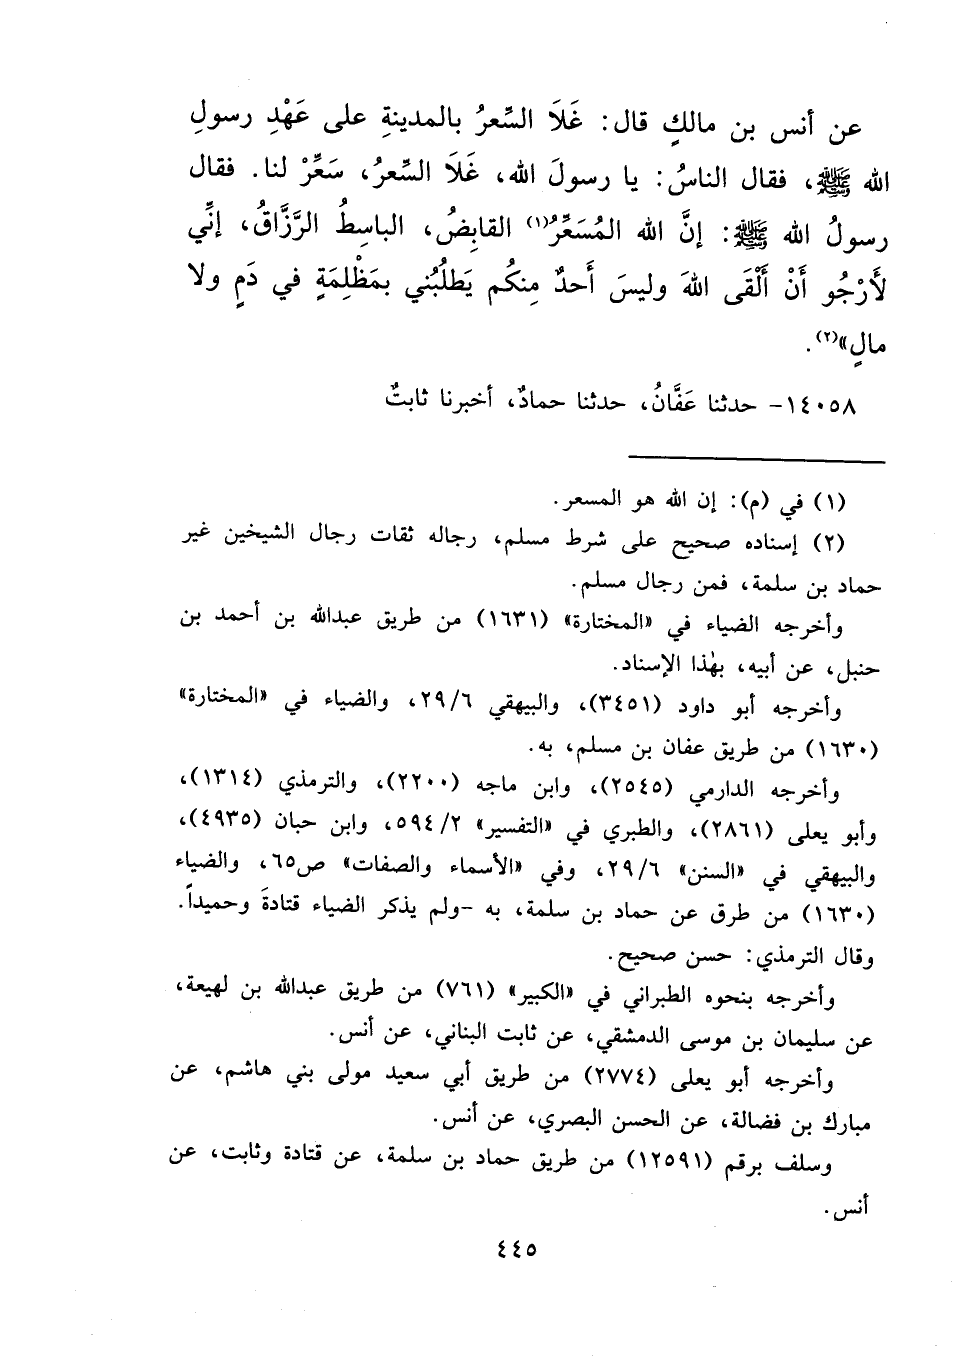 عن أنس بن مالكٍ قال: غَلَا السِّعرُ بالمدينةِ على عَهْدِ رسولِ
الله ﷺ، فقال الناسُ: يا رسولَ الله، غَلَا السِّعرُ، سَعِّرْ لنا. فقال
رسولُ الله ﷺ: إنَّ الله المُسَعِّرُ(١) القابِضُ، الباسِطُ الرَّزَّاقُ، إنِّي
لأَرْجُو أَنْ أَلْقَى اللهَ وليسَ أَحدٌ مِنكُم يَطلُبُني بمَظْلِمَةٍ في دَمٍ ولا
مالٍ»(٢).
١٤٠٥٨- حدثنا عَفَّانُ، حدثنا حمادٌ، أخبرنا ثابتٌ
(١) في (م): إن الله هو المسعر.
(٢) إسناده صحيح على شرط مسلم، رجاله ثقات رجال الشيخين غير
حماد بن سلمة، فمن رجال مسلم.
وأخرجه الضياء في «المختارة» (١٦٣١) من طريق عبدالله بن أحمد بن
حنبل، عن أبيه، بهٰذا الإسناد.
وأخرجه أبو داود (٣٤٥١)، والبيهقي ٢٩/٦، والضياء في «المختارة»
(١٦٣٠) من طريق عفان بن مسلم، به.
وأخرجه الدارمي (٢٥٤٥)، وابن ماجه (٢٢٠٠)، والترمذي (١٣١٤)،
وأبو يعلى (٢٨٦١)، والطبري في «التفسير» ٥٩٤/٢، وابن حبان (٤٩٣٥)،
والبيهقي في «السنن» ٢٩/٦، وفي «الأسماء والصفات» ص٦٥، والضياء
(١٦٣٠) من طرق عن حماد بن سلمة، به -ولم يذكر الضياء قتادةَ وحميداً.
وقال الترمذي: حسن صحيح.
وأخرجه بنحوه الطبراني في «الكبير» (٧٦١) من طريق عبدالله بن لهيعة،
عن سليمان بن موسى الدمشقي، عن ثابت البناني، عن أنس.
وأخرجه أبو يعلى (٢٧٧٤) من طريق أبي سعيد مولى بني هاشم، عن
مبارك بن فضالة، عن الحسن البصري، عن أنس.
وسلف برقم (١٢٥٩١) من طريق حماد بن سلمة، عن قتادة وثابت، عن
أنس.
٤٤٥